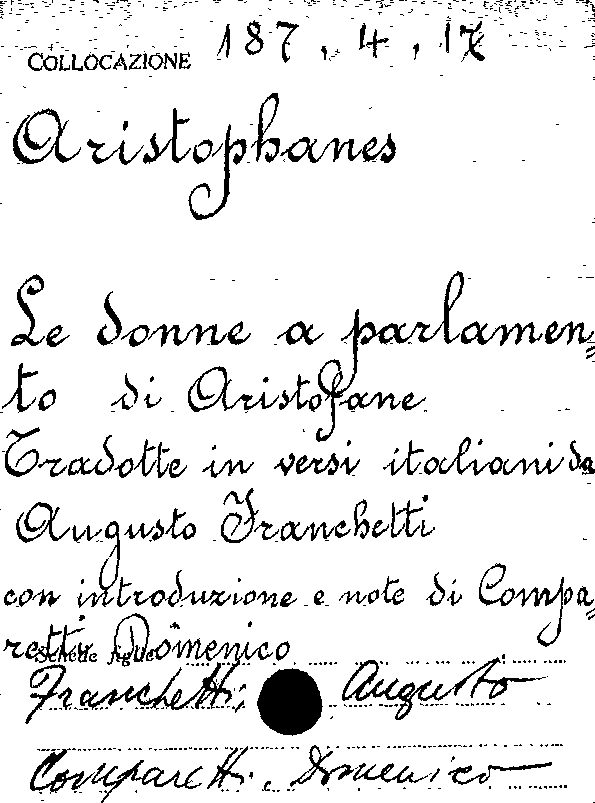 COLLOCAZIONE 187.4.17
Aristophanes
Le donne a parlamen=
to di Aristofane
Tradotte in versi italiani da
Augusto Franchetti
con introduzione e note di Compa=
retti Domenico
Schede figlie
Franchetti, Augusto
Comparetti. Domenico